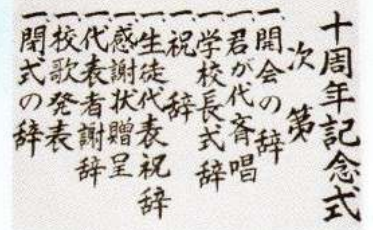 十周年記念式
次第
一、開会の辞
一、君が代斉唱
一、学校長式辞
一、祝辞
一、生徒代表祝辞
一、感謝状贈呈
一、代表者謝辞
一、校歌発表
一、閉式の辞